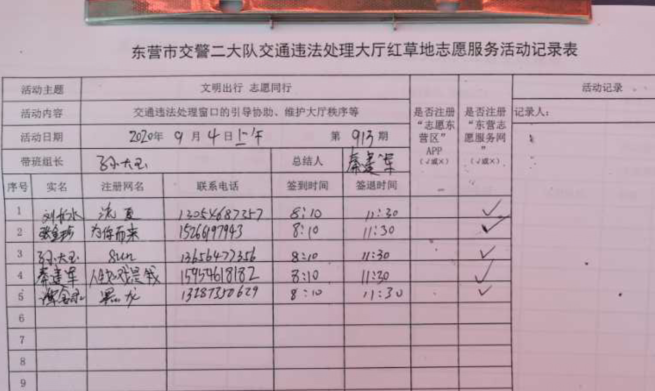 东营市交警二大队交通违法处理大厅红草地志愿服务活动记录表
活动主题 文明出行 志愿同行 活动记录
活动内容 交通违法处理窗口的引导协助、维护大厅秩序等 是否注册“志愿东营区”APP（√或×） 是否注册“东营志愿服务网”（√或×） 记录人：
活动日期 2020年9月4日上午 第913期
带班组长 孙大玉 总结人 秦建军
序号 实名 注册网名 联系电话 签到时间 签退时间
1 流夏 13054687257 8:10 11:30 √
2 为你而来 15266197943 8:10 11:30 √
3 孙大玉 sun 13656477356 8:10 11:30 √
4 秦建军 15954618182 8:10 11:30 √
5 黑龙 13287350629 8:10 11:30 √
6
7
8
9